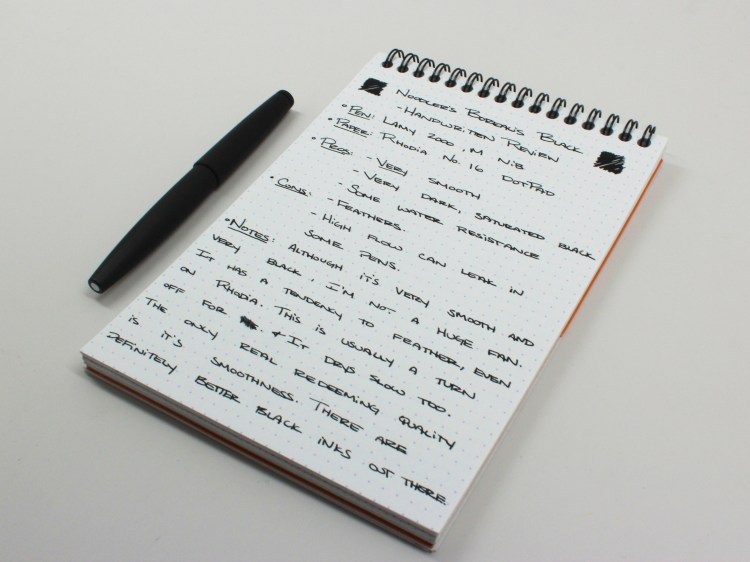 Noodler's Borealis Black
- Handwritten Review
• Pen: Lamy 2000, M Nib
• Paper: Rhodia No. 16 DotPad
• Pros: - Very smooth
- Very dark, saturated black
- Some water resistance
• Cons: - Feathers.
- High flow can leak in
some pens.
• Notes: Although it's very smooth and
very black, I'm not a huge fan.
It has a tendency to feather, even
on Rhodia. This is usually a turn
off for & it drys slow too.
The only real redeeming quality
is it's smoothness. There are
definitely better black inks out there